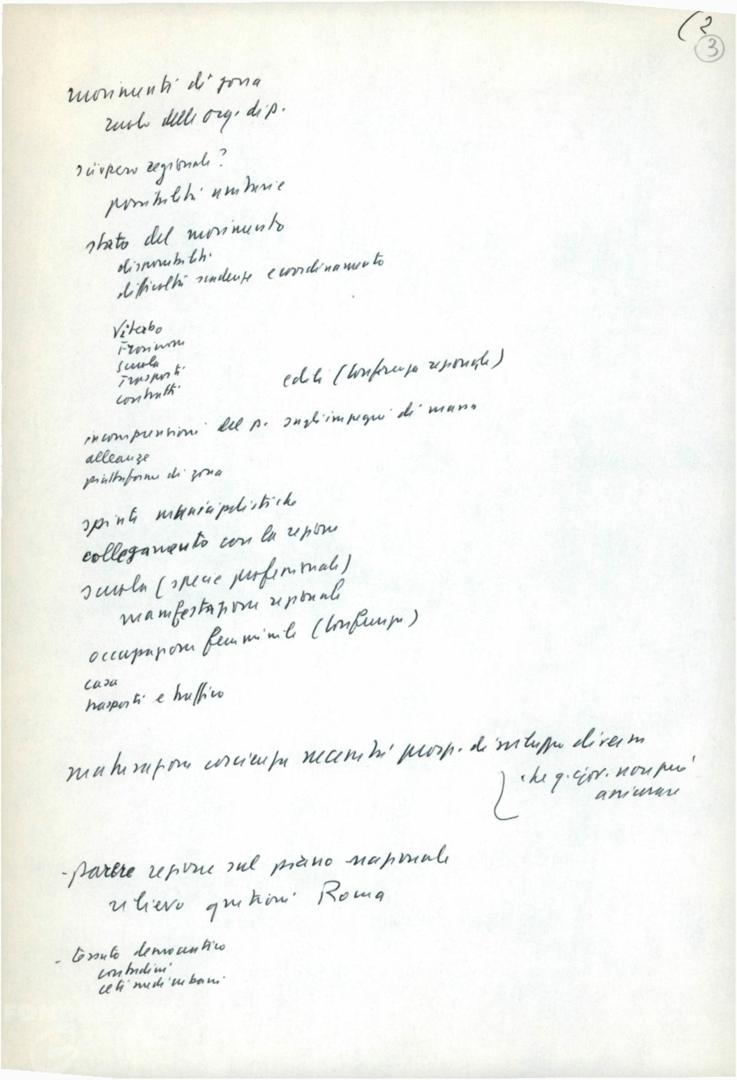 (2
3
movimenti di zona
ruolo delle org. di p.
sciopero regionale?
possibilità unitarie
stato del movimento
disponibilità
difficoltà scadenze e coordinamento
Viterbo
Frosinone
scuola
trasporti
contratti
edili (conferenza regionale)
incomprensioni del p. sugli impegni di massa
alleanze
piattaforme di zona
spinte municipalistiche
collegamento con la regione
scuola (specie professionale)
manifestazione regionale
occupazione femminile (conferenza)
casa
trasporti e traffico
maturazione coscienza necessità prosp. di sviluppo diversa
che q. gov. non può
assicurare
- parere regione sul piano nazionale
rilievo questioni Roma
- tessuto democratico
contadini
ceti medi urbani